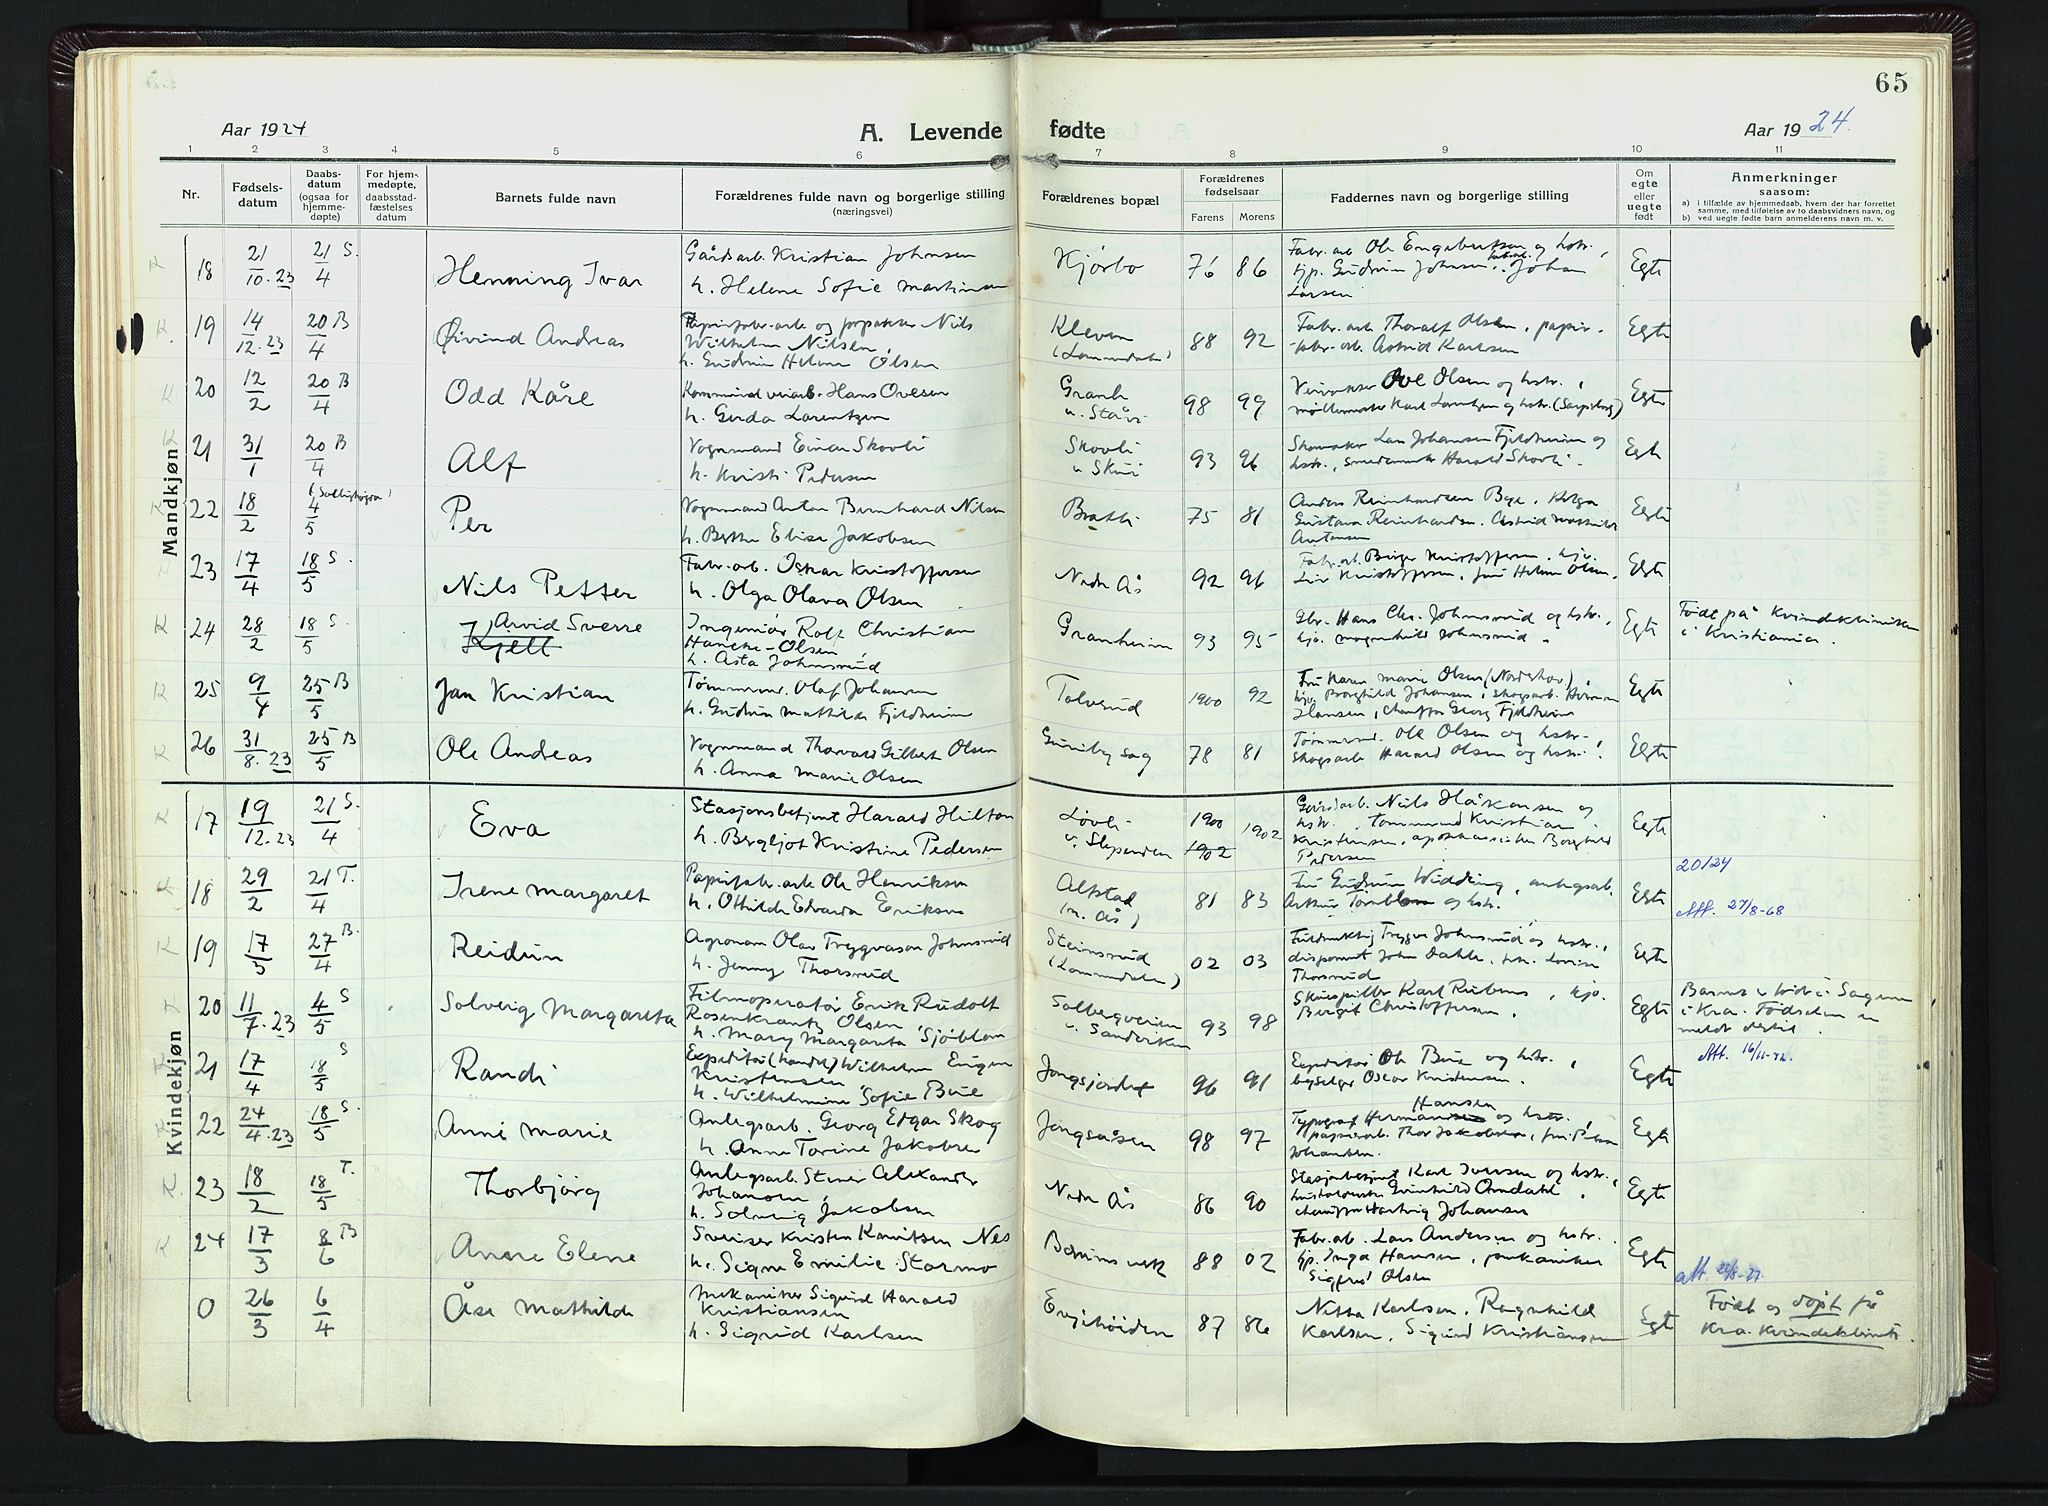 65
Aar 1924
A. Levende fødte
Aar 1924.
1 2 3 4 5 6 7 8 9 10 11
Nr.
Fødsels-
datum
Daabs-
datum
(ogsaa for
hjemme-
døpte)
For hjem-
medøpte,
daabsstad-
fæstelses
datum
Barnets fulde navn
Forældrenes fulde navn og borgerlige stilling
(næringsvei)
Forældrenes bopæl
Forældrenes
fødselsaar
Farens Morens
Faddernes navn og borgerlige stilling
Om
egte
eller
uegte
født
Anmerkninger
saasom:
a) i tilfælde av hjemmedaab, hvem der har forrettet
samme, med tilføielse av to daabsvidners navn, og
b) ved uegte fødte barn anmelderens navn m. v.
Mandkjøn
18 21/10.23 21/4 S. Henning Ivar
Gårdsarb. Kristian Johnsen
h. Helene Sofie Martinsen
Kjørbo 76 86
Fabr. arb Ole Engebretsen og hstr.,
tjp. Gudrun Johnsen, Johan
Larsen
Egte
19 14/12.23 20/4 B Øivind Andreas
Nils
Wilhelm Nilsen
h. Gudrun Helene Olsen
Kleven
(Lommedalen)
88 92
Fabr. arb Thoralf Olsen, papir-
fabr. arb. Astrid Karlsen
Egte
20 12/2 20/4 B Odd Kåre
Hans Ovesen
h. Gerda Larentzen
98 99
Ole Olsen og hstr.,
og hstr. (Sarpsborg)
Egte
21 31/1 20/4 B Alf
Vognmand Einar Skovli
h. Kristi Pedersen
Skovli
v. Skui
93 96
Skomaker Lars Johansen Fjeldheim og
hstr., Harald Skovli.
Egte
22 18/2 4/5 Per
Vognmand Anton Bernhard Nilsen
h. Berthe Elise Jakobsen
Bratli 75 81
Anders Reinhardsen Bye, Helga
Gustava Reinhardsen, Astrid Mathilde
Antonsen
Egte
23 17/4 18/5 S. Nils Petter
Fabr. arb. Oskar Kristoffersen
h. Olga Olava Olsen
Nedre Ås 92 96
Fabr. arb. Birger Kristoffersen, hjv.
Kristoffersen, frk Helene Olsen.
Egte
24 28/2 18/5 S. Arvid Sverre
Kjell
Ingeniør Rolf Christian
Hancke-Olsen
h. Asta Johnsrud
Granheim 93 95
Gbr. Hans Chr. Johnsrud og hstr.,
hjv. Magnhild Johnsrud
Egte
Født på Kvindeklinikken
i Kristiania.
25 9/4 25/5 B Jan Kristian
Tømmerm. Olaf Johansen
h. Gudrun Mathilde Fjeldheim
Tolvsrud 1900 92
Fru Karen Marie Olsen (Norderhov),
hjv. Borghild Johansen, skogsarb.
Hansen, chauffør Georg Fjeldheim
Egte
26 31/8.23 25/5 B Ole Andreas
Vognmand Thorvald Gilbert Olsen
h. Anna Marie Olsen
sag 78 81
Tømmerm. Ole Olsen og hstr.,
skogsarb Harald Olsen og hstr.
Egte
Kvindekjøn
17 19/12.23 21/4 S. Eva
Stasjonsbetjent Harald Hilton
h. Bergljot Kristine Pedersen
Løvli
v. Slependen
1900 1902
1902
Gårdsarb. Nils Håkonsen og
hstr., tømmermand Kristian
Kristensen, Borghild
Pedersen
Egte
18 29/2 21/4 T. Irene Margaret
Papirfabr. arb Ole Henriksen
h. Othilde Edvarda Eriksen
(n. Ås)
81 83
Fru Gudrun Widding, anlegsarb.
Artur og hstr.
Egte
20124
Att. 27/8-68
19 17/3 27/4 B. Reidun
Agronom Olav Trygvason Johnsrud
h. Jenny Thorsrud
Steinsrud
(Lommedalen)
02 03
Trygve Johnsrud og hstr.,
disponent John Dahle, frk. Lovise
Thorsrud
Egte
20 11/7.23 4/5 S Solveig Margareta
Filmoperatør Erik Rudolf
Rosenkrantz Olsen
h. Mary Margareta Sjöblom
Solbergveien
v. Sandviken
93 98
Skuespiller Karl Rubens, hjv.
Birgit Christoffersen.
Egte
i Kra. Fødselen er
meldt dertil.
21 17/4 18/5 S Randi
Expeditør (handel) Wilhelm Eugen
Kristensen
h. Wilhelmine Sofie Bue
Jongsjordet 96 91
Expeditør Ole Bue og hstr.,
Oscar Kristensen.
Egte
Att. 16/11-42.
22 24/4.23 18/5 S. Anne Marie
Anlegsarb. Georg Edgar Skog
h. Anne Torine Jakobsen
Jongsåsen 98 97
Hansen
Typograf Hermansen og hstr.,
papirarb. Thor Jakobsen, fru
Johansen.
Egte
23 18/2 18/5 T. Thorbjørg
Anlegsarb. Stener Alexander
Johansen,
h. Solveig Jakobsen
Nedre Ås 86 90
Stasjonsbetjent Karl Iversen og hstr.,
Gunhild Omdahl,
chauffør Hartvig Johansen
Egte
24 17/3 8/6 B Anne Elene
Sveiser Kristen Knutsen Nes
h. Signe Emilie Stormo
Bærums verk 88 02
Fabr. arb. Lars Andersen og hstr.
tjp. Inga Hansen, mekaniker
Sigfred Olsen
Egte
0 26/3 6/4 Åse Mathilde
Mekaniker Sigurd Harald
Kristiansen
h. Sigrid Karlsen
Engihøiden 87 86
Nitta Karlsen, Ragnhild
Karlsen, Sigurd Kristiansen
Egte
Født og døpt på
Kra. Kvindeklinik.